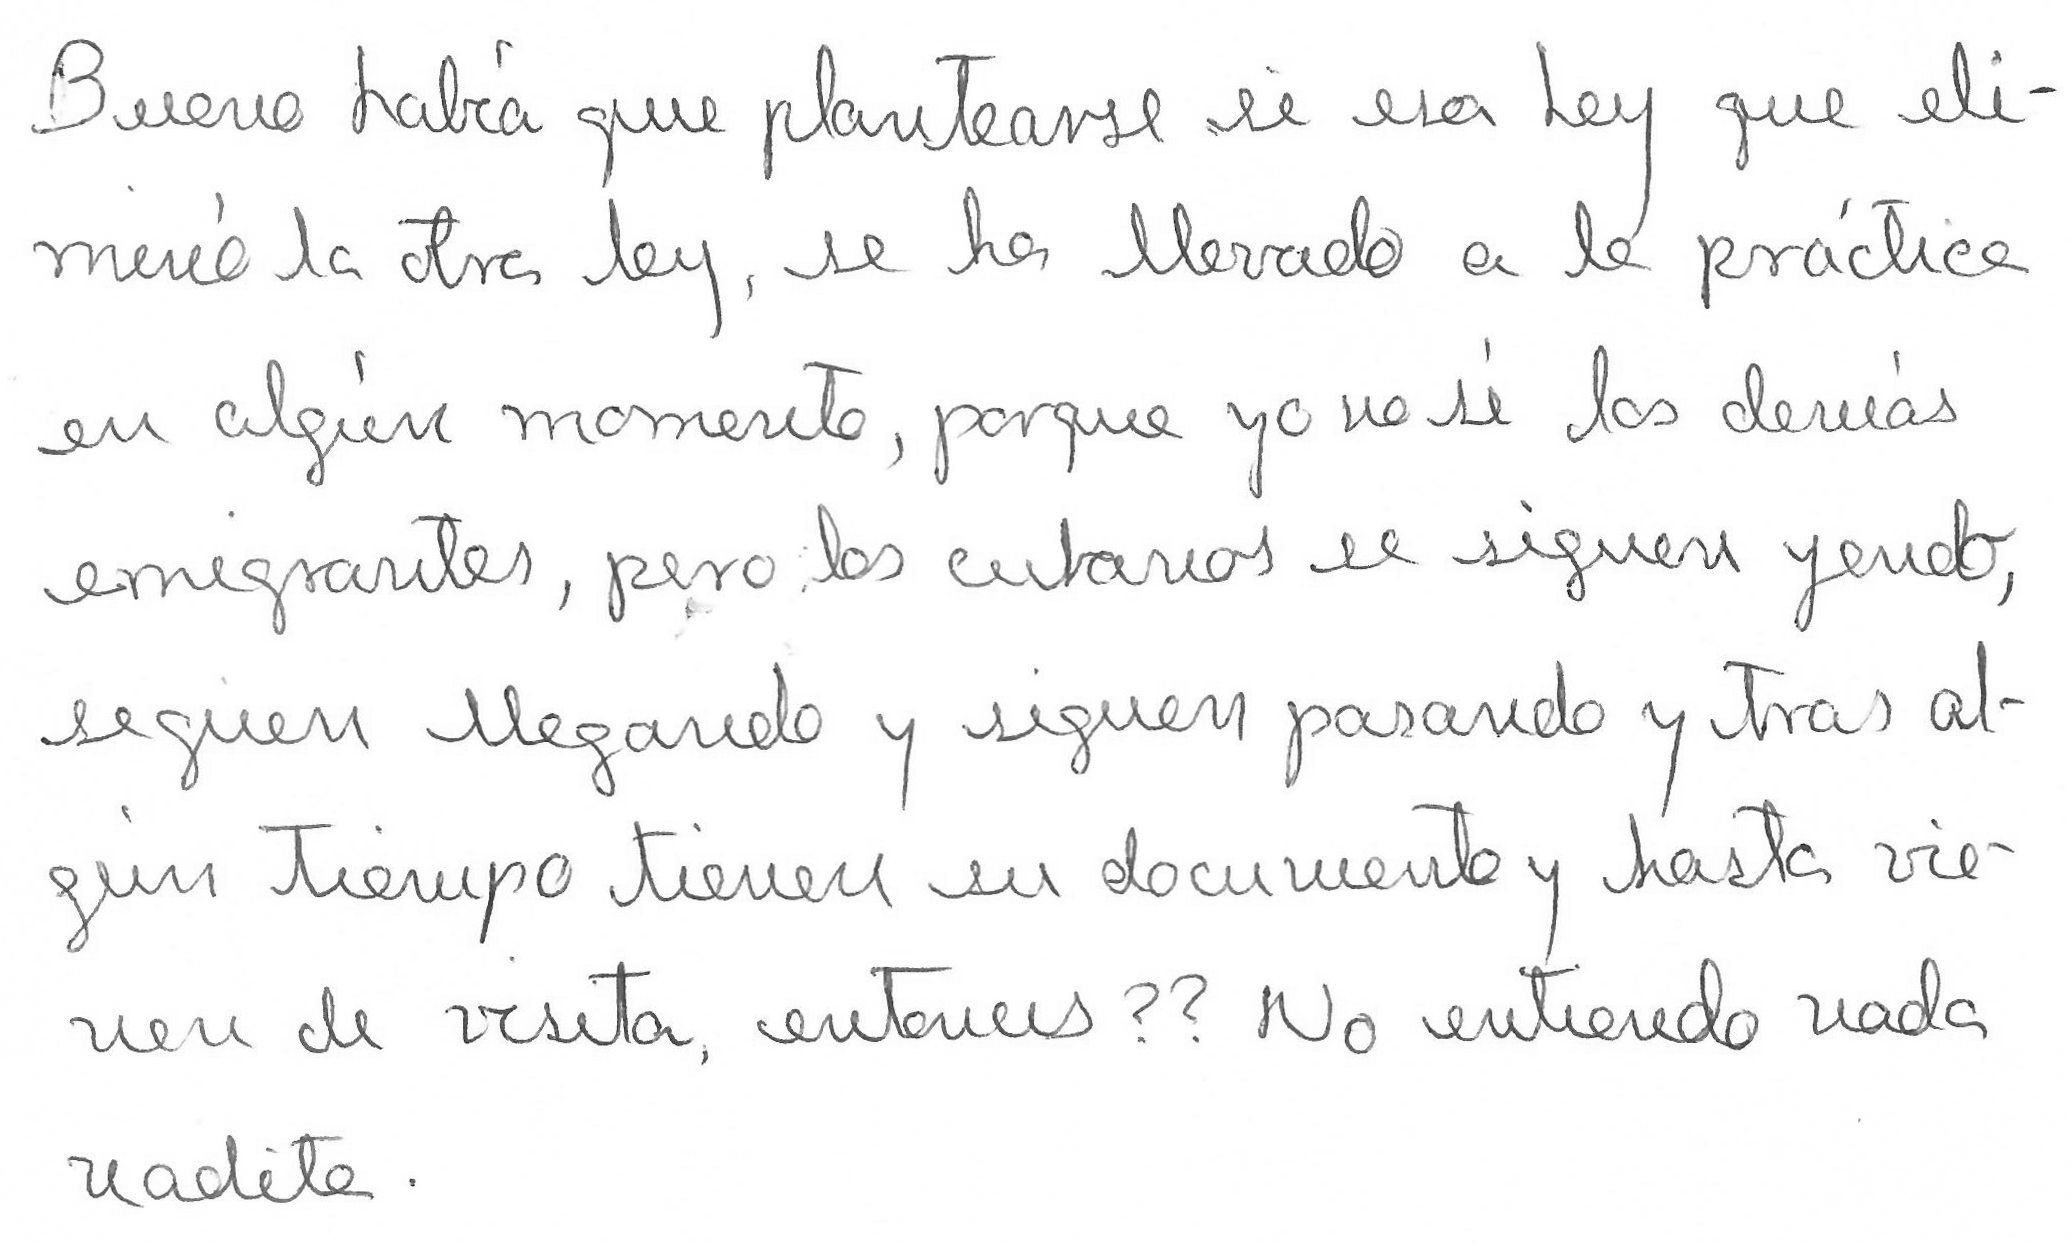 Bueno había que plantearse si esa Ley que eli-
minó la otra ley, se ha llevado a la práctica
en algún momento, porque yo no sé los demás
emigrantes, pero los cubanos se siguen yendo,
siguen llegando y siguen pasando y tras al-
gún tiempo tienen su documento y hasta vie-
nen de visita, entonces?? No entiendo nada
nadita.